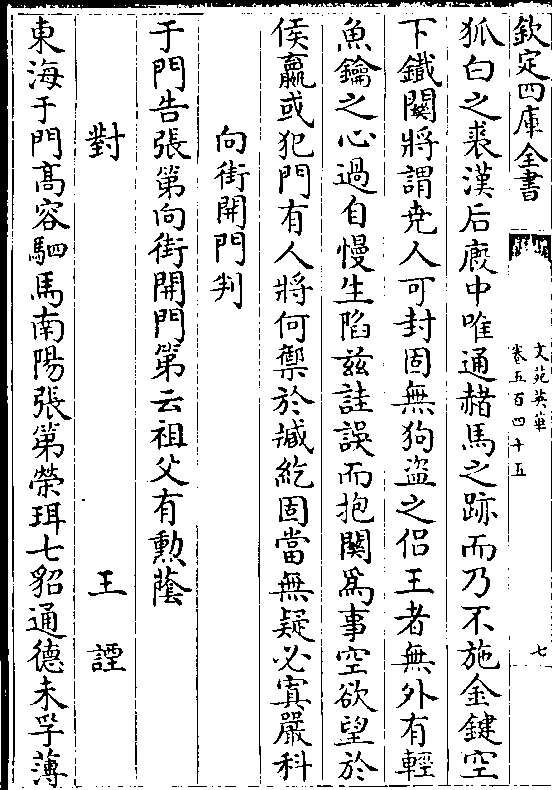 欽定四庫全書
文苑英華
卷五百四十五
七
狐白之裘漢后廄中唯通赭馬之跡而乃不施金鍵空
下鐵關將謂堯人可封固無狗盗之侣王者無外有輕
魚鑰之心過自慢生陷兹詿誤而抱關為事空欲望於
侯嬴或犯門有人將何禦於臧紇固當無疑必寘嚴科
向街開門判
于門告張第向街開門第云祖父有勲蔭
對 王諲
東海于門髙容駟馬南陽張第榮珥七貂通德未孚薄